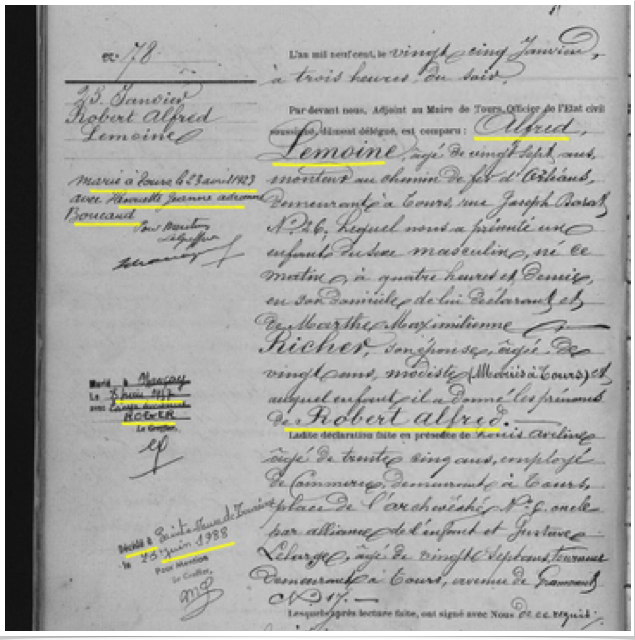 n° 78
25. Janvier
Robert Alfred
Lemoine
marié à Tours le 23 avril 1923
avec Henriette Jeanne
Boucaud
Pour Mention
Le Greffier
Marié à
Le
avec
ROGER
Le Greffier,
Décédé à Sainte Maure de Touraine
le 25 juin 1988
Pour Mention
Le Greffier,
L'an mil neuf cent, le vingt cinq Janvier,
à trois heures du soir,
Par devant nous, Adjoint au Maire de Tours, Officier de l'Etat civil
soussigné, dûment délégué, est comparu : Alfred,
Lemoine, âgé de vingt sept ans,
monteur au chemin de fer d'Orléans,
demeurant à Tours, rue Joseph
N° 26, Lequel nous a présenté un
enfant du sexe masculin, né ce
matin, à quatre heures et demie,
en son domicile de lui déclarant et
de Marthe Maximilienne
Richer, son épouse, âgée de
vingt ans, modiste (Mariés à Tours) et
auquel enfant il a donné les prénoms
de Robert Alfred.
Ladite déclaration faite en présence de Louis
âgé de trente cinq ans, employé
de Commerce, demeurant à Tours,
place de l'archevêché, N° 6, oncle
par alliance de l'enfant et Gustave
Lelarge, âgé de vingt sept ans, tourneur
Demeurant à Tours, avenue de Grammont,
N° 17.
Lesquels après lecture faite, ont signé avec Nous de ce requis